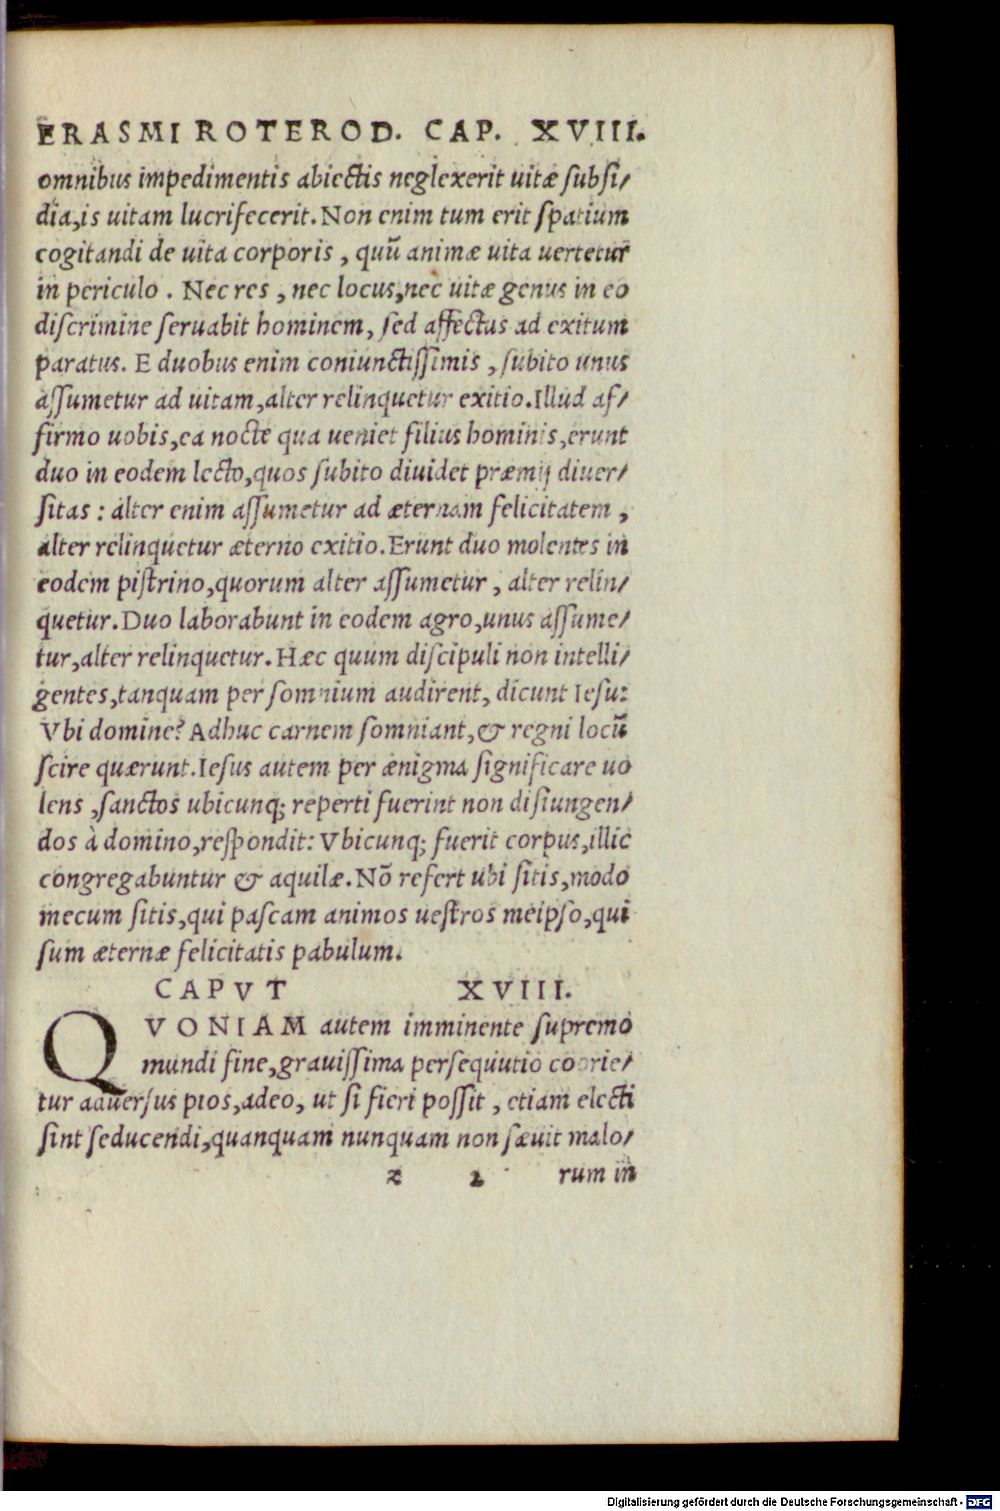 ERASMI ROTEROD. CAP. XVIII.
omnibus impedimentis abiectis neglexerit uitæ subsi/
dia,is uitam lucrifecerit. Non enim tum erit spatium
cogitandi de uita corporis , quũ animæ uita uertetur
in periculo . Nec res , nec locus,nec uitæ genus in eo
discrimine seruabit hominem, sed affectus ad exitum
paratus. E duobus enim coniunctissimis , subito unus
assumetur ad uitam,alter relinquetur exitio.Illud af/
firmo uobis,ea nocte qua ueniet filius hominis,erunt
duo in eodem lecto,quos subito diuidet præmij diuer/
sitas : alter enim assumetur ad æternam felicitatem ,
alter relinquetur æterno exitio.Erunt duo molentes in
eodem pistrino,quorum alter assumetur , alter relin/
quetur. Duo laborabunt in eodem agro,unus assume/
tur,alter relinquetur. Hæc quum discipuli non intelli/
gentes,tanquam per somnium audirent, dicunt Iesu:
Vbi domine? Adhuc carnem somniant,& regni locũ
scire quærunt.Iesus autem per ænigma significare uo
lens ,sanctos ubicunq; reperti fuerint non disiungen/
dos à domino,respondit: Vbicunq; fuerit corpus,illic
congregabuntur & aquilæ. Nõ refert ubi sitis,modo
mecum sitis,qui pascam animos uestros meipso,qui
sum æternæ felicitatis pabulum.
CAPVT XVIII.
QVONIAM autem imminente supremo
mundi fine,grauissima persequutio coorie/
tur aduersus pios,adeo, ut si fieri possit , etiam electi
sint seducendi,quanquam nunquam non sæuit malo/
z 2 rum in
Digitalisierung gefördert durch die Deutsche Forschungsgemeinschaft - DFG